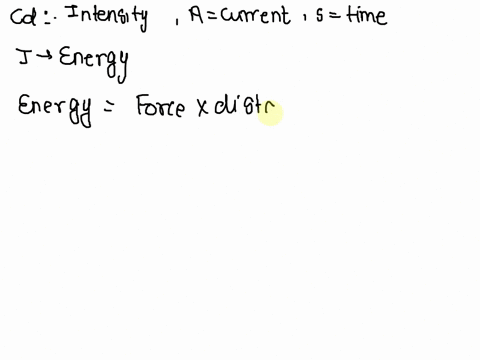 Cd :- Intensity , A = current , s = time
J → Energy
Energy = Force x distr